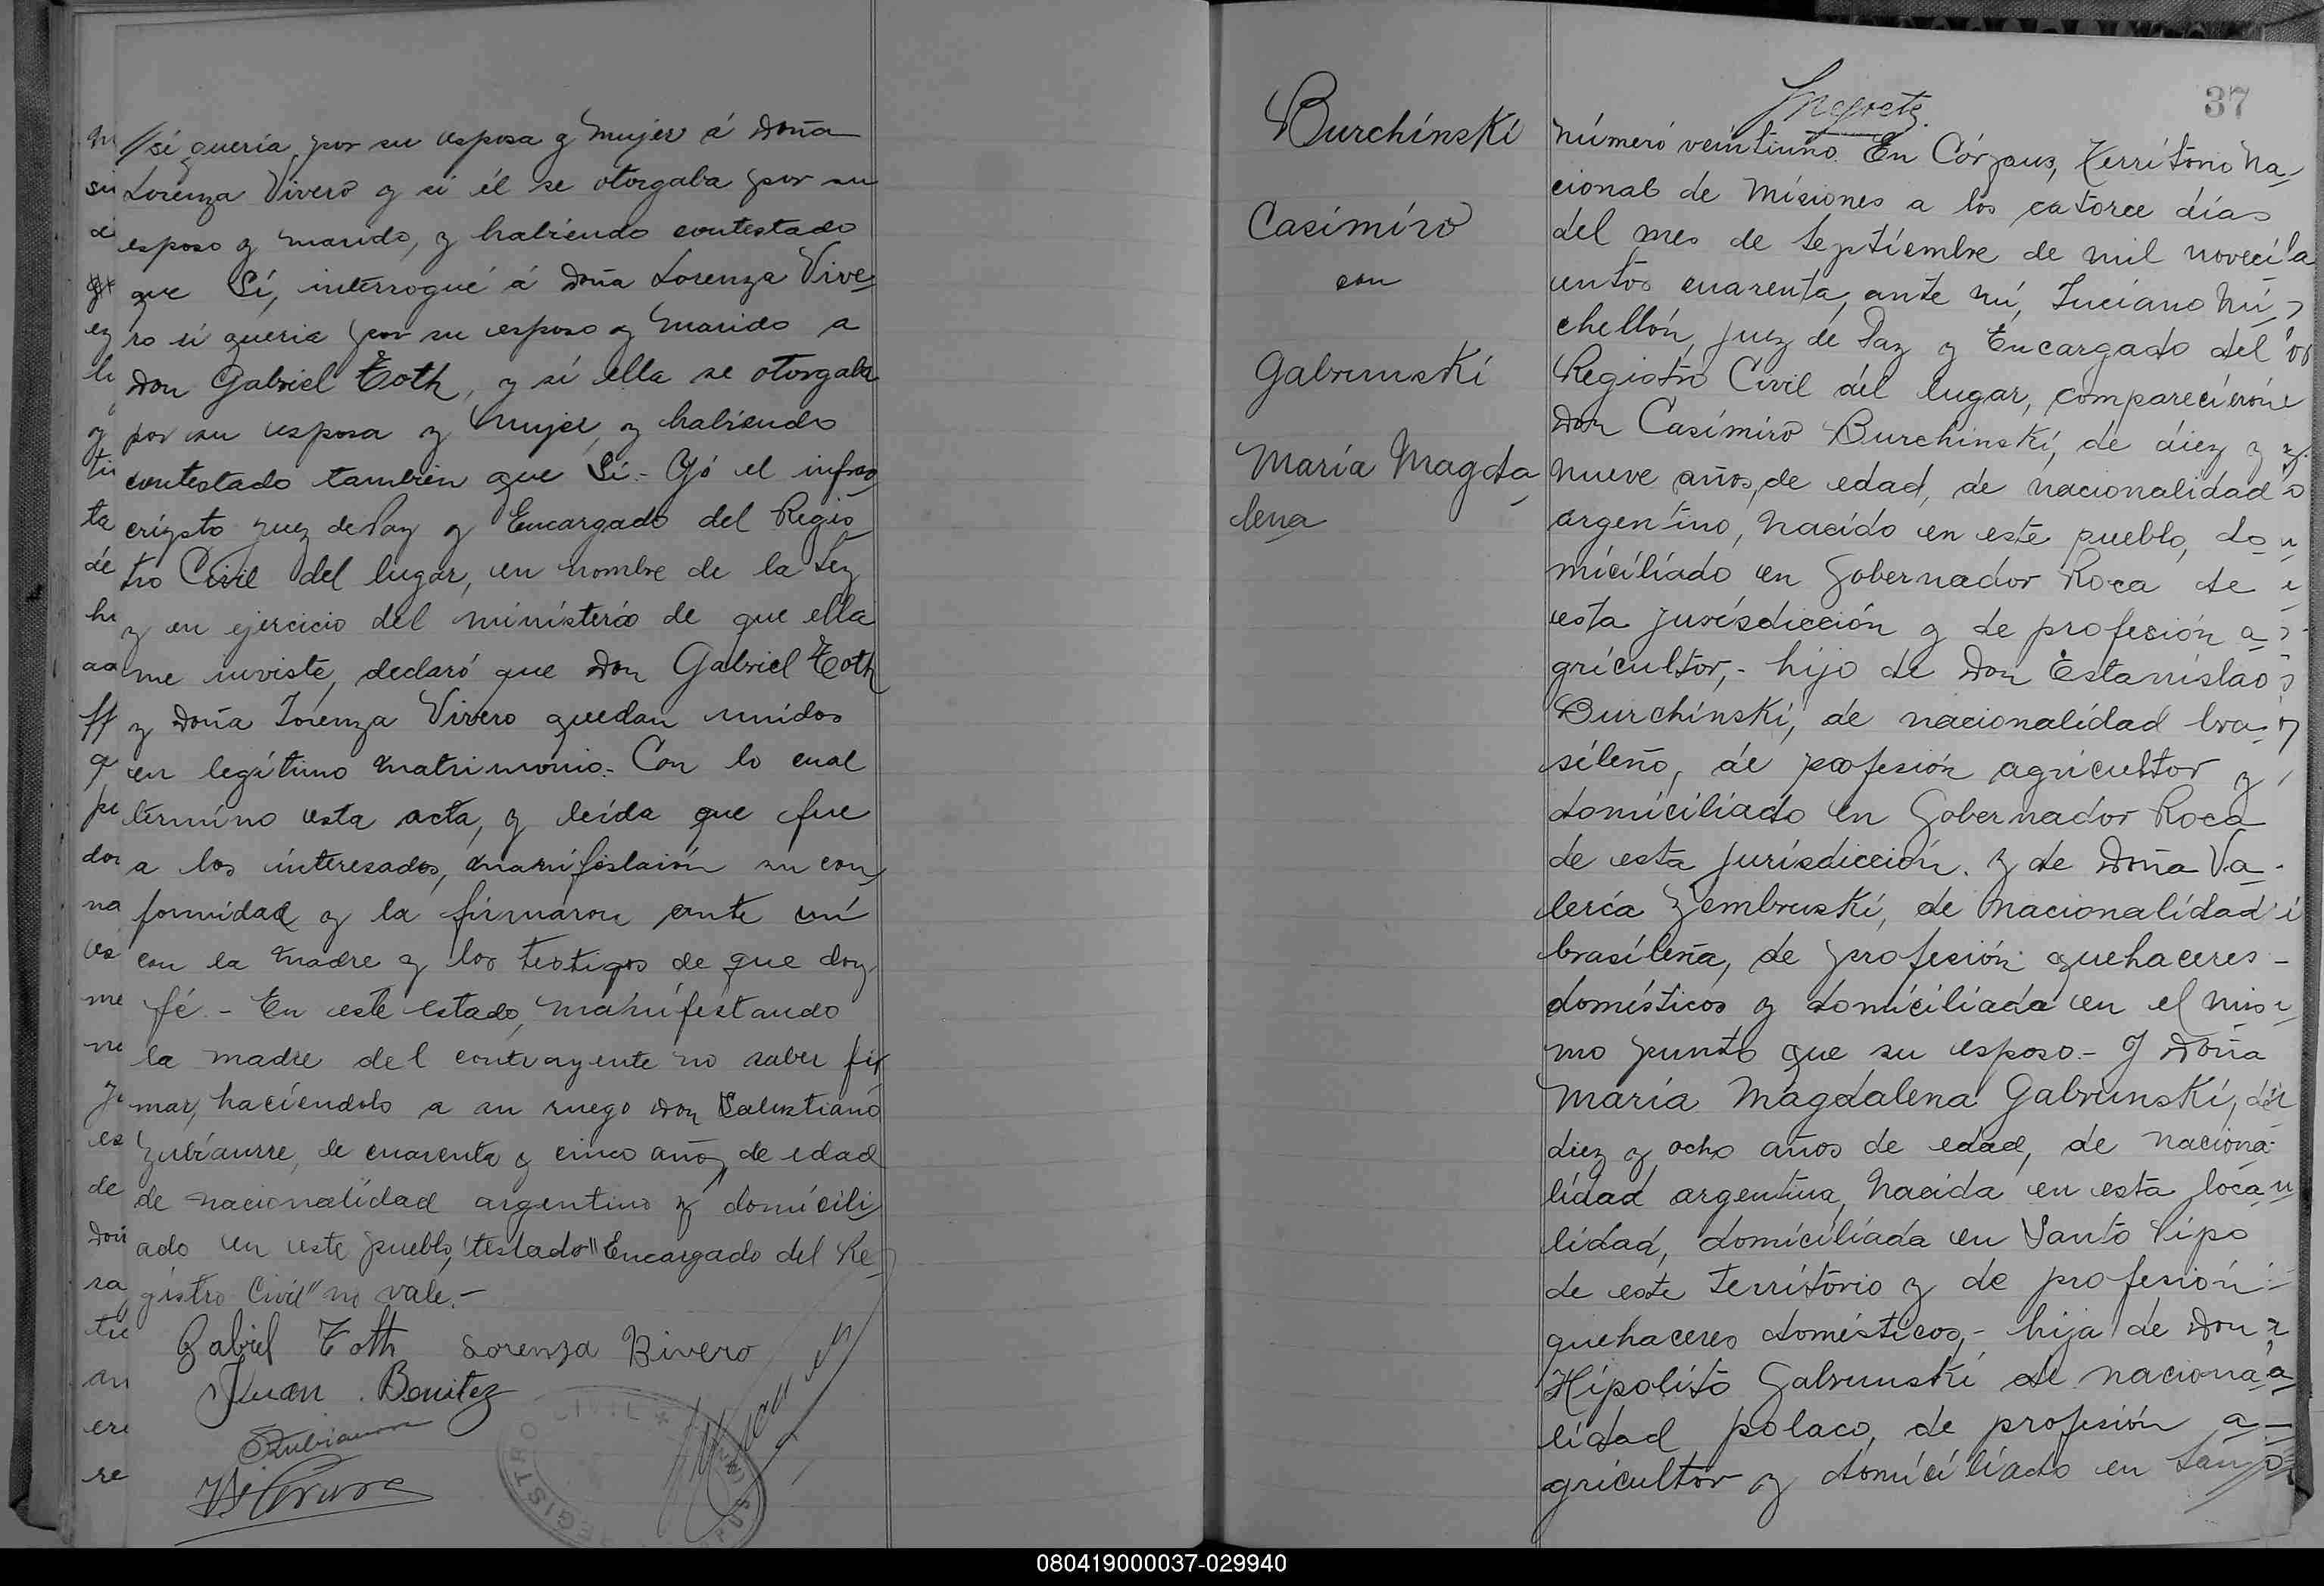 //si quería por su esposa y mujer á doña
Lorenza Vivero y si él se otorgaba por su
esposo y marido, y habiendo contestado
que Sí, interrogué á doña Lorenza Vive-
ro si queria por su esposo y marido a
don Gabriel Toth, y sí ella se otorgaba
por su esposa y mujer, y habiendo
contestado tambien que Sí.- Yó el infras-
cripto juez de Paz y Encargado del Regis-
tro Civil del lugar, en nombre de la Ley
y en ejercicio del ministerio de que ella
me inviste, declaró que don Gabriel Toth
y doña Lorenza Vivero quedan unidos
en legítimo matrimonio.- Con lo cual
termino esta acta, y leída que fue
a los interesados, manifestaión su con-
formidad y la firmaron ante mí
con la madre y los testigos de que doy
fé.- En este estado, manifestando
la madre del contrayente no saber fir
mar, haciéndolo a su ruego don Salustiano
Zubiaurre, de cuarenta y cinco años de edad
de nacionalidad argentino y domicili-
ado en este pueblo, testado "Encargado del Re-
gistro Civil" no vale.-
Gabriel Toth Lorenza Bivero
Juan Benitez
SZubiaurre
REGISTRO CIVIL
37
Burchínski
Casimiro
con
Gabrunski
María Magda
lena
número veintiuno. En Córpus, Territorio Na-
cional de Misiones a los catorce días
del mes de Septiembre de mil noveci
entos cuarenta, ante mí, Luciano Mi-
chellón, juez de Paz y Encargado del
Registro Civil del lugar, compareciéron
don Casimiro Burchinski, de diez y
nueve años, de edad, de nacionalidad
argentino, nacido en este pueblo, do-
miciliado en Gobernador Roca de
esta jurisdicción y de profesión a-
gricultor,- hijo de don Estanislao
Burchínski, de nacionalidad bra-
sileño, de profesión agricultor y
domiciliado en Gobernador Roca
de esta jurisdicción. y de doña Va-
leria Zembruski, de nacionalidad
brasileña, de profesión quehaceres-
domésticos y domiciliada en el mis-
mo punto que su esposo.- Y doña
María Magdalena Gabrunski, de
diez y ocho años de edad, de naciona-
lidad argentina, nacida en esta loca-
lidad, domiciliada en Santo Pipo
de este territorio y de profesión
quehaceres domésticos,- hija de don
Hípolito Gabrunski de naciona-
lidad polaco, de profesión a-
gricultor y domiciliado en San//
080419000037-029940